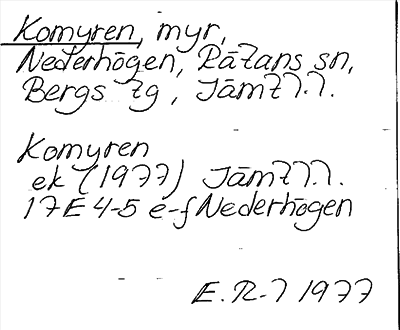 Komyren, myr,
Nederhögen, Rätans sn,
Bergs tg, Jämtl.l.
Komyren
ek (1977) Jämtl.l.
17E 4-5 e-f Nederhögen
E.R-l 1977